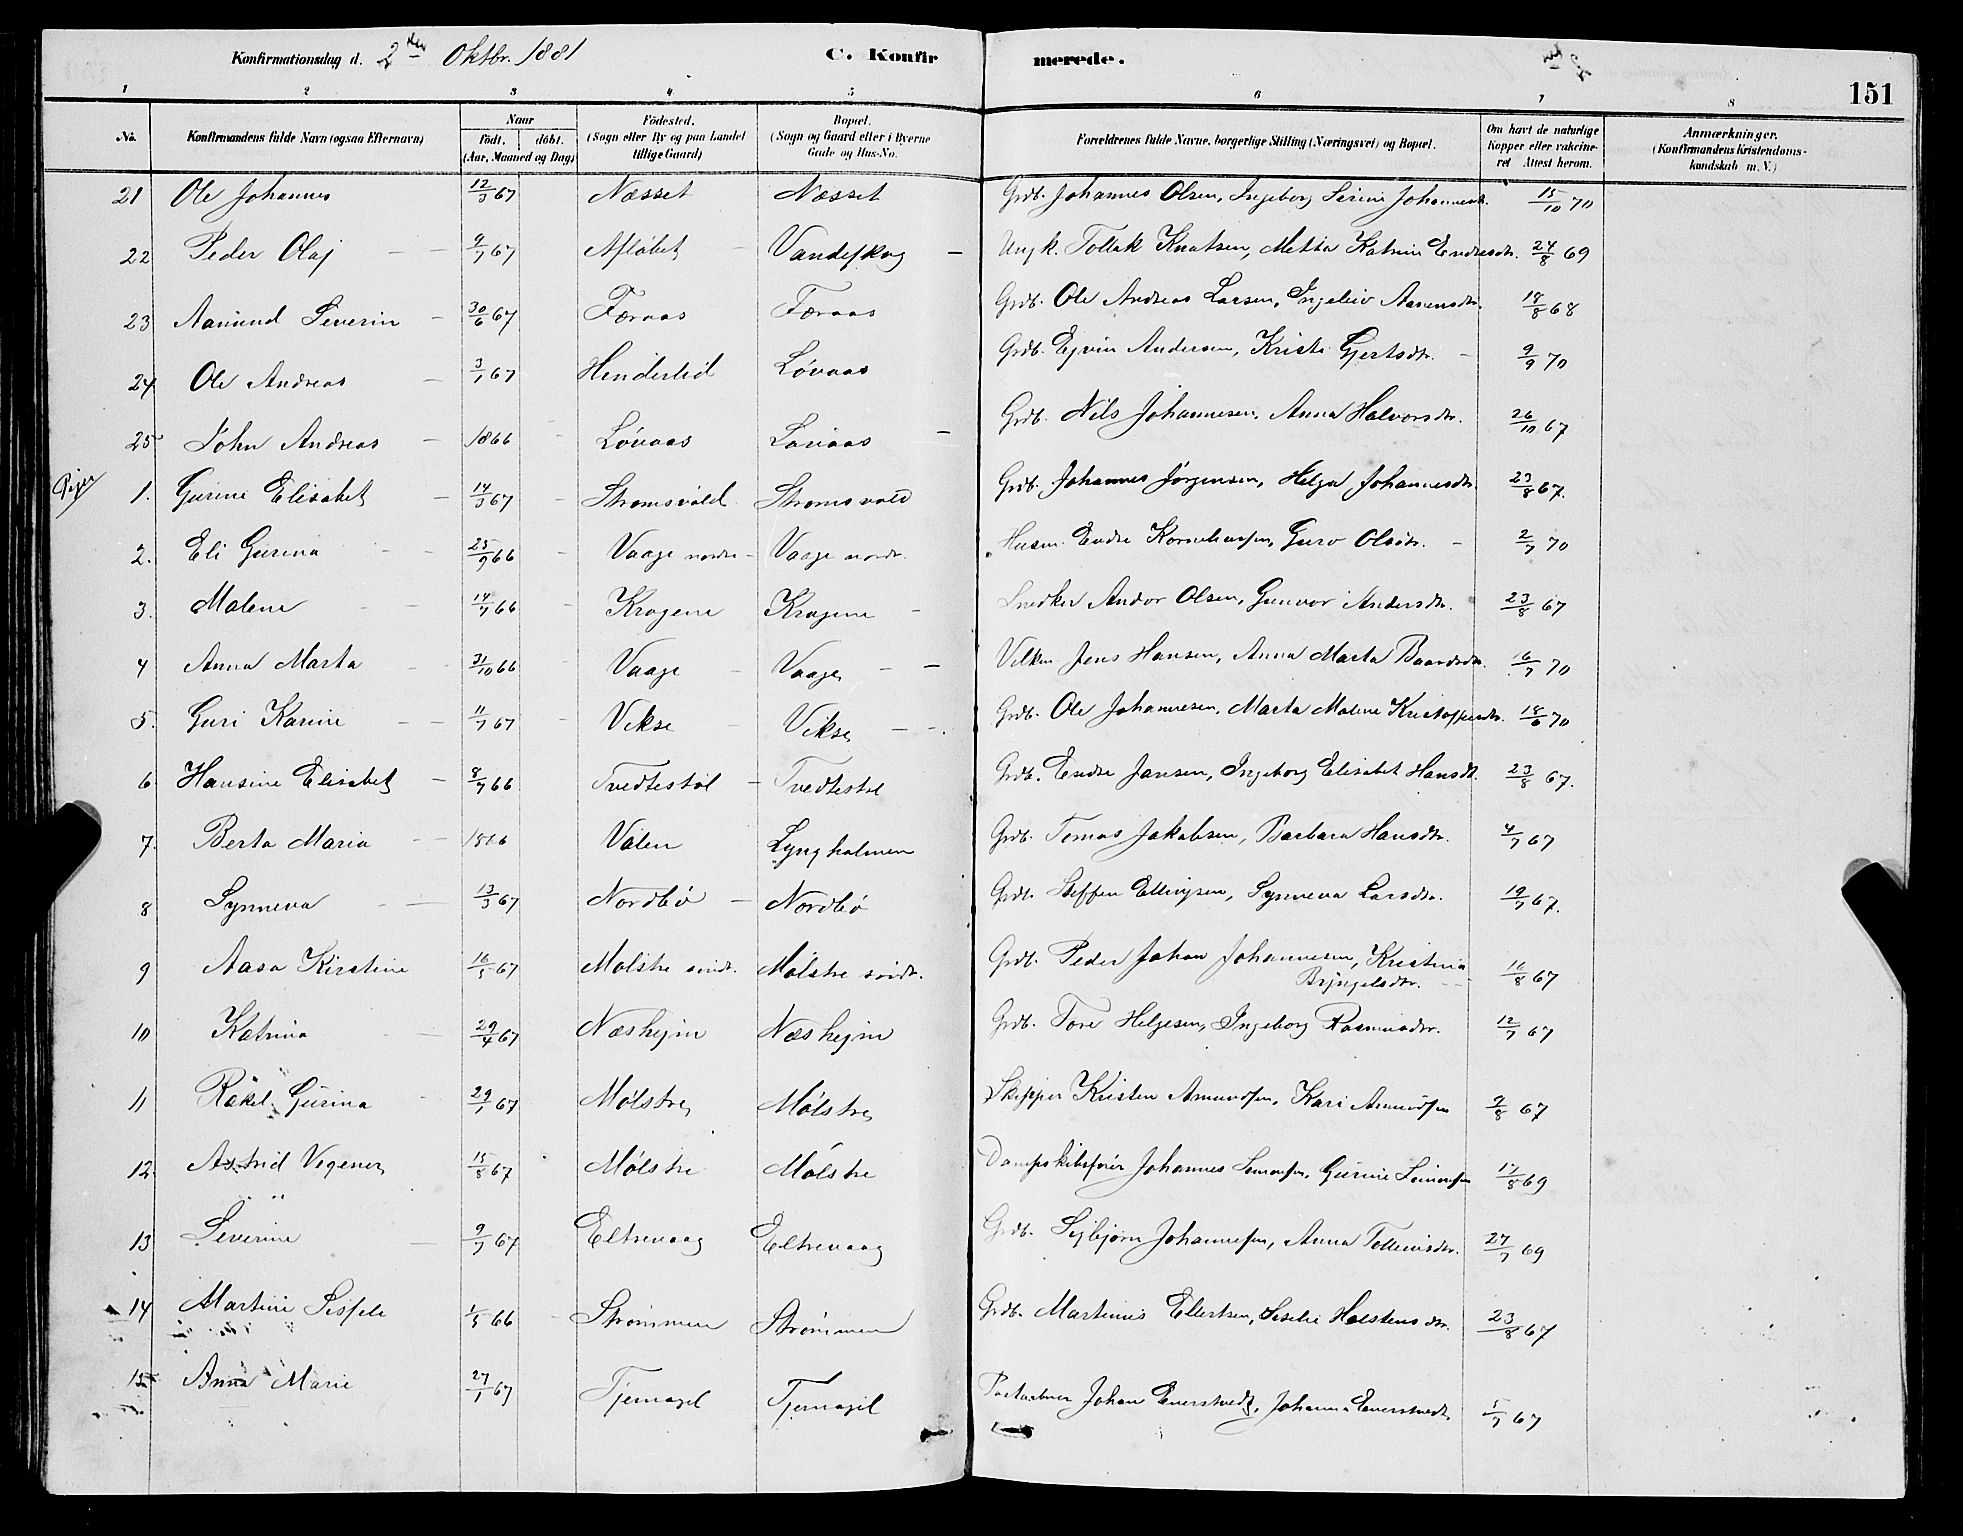 Konfirmationsdag d. 2den Oktbr. 1881 C. Konfirmerede. 151
1 2 3 4 5 6 7 8
No. Konfirmandens fulde Navn (ogsaa Efternavn) Naar født. døbt. (Aar, Maaned og Dag) Fødested. (Sogn eller By og paa Landet tillige Gaard) Bopæl. (Sogn og Gaard eller i Byerne Gade og Hus-No. Forældrenes fulde Navne, borgerlige Stilling (Næringsvei) og Bopæl. Om havt de naturlige Kopper eller vakcineret Attest herom. Anmærkninger. (Konfirmandens Kristendomskundskab m. V.)
21 Ole Johannes 12/3 67 Næsset Næsset Grdb. Johannes Olsen, Ingeborg Serine Johannesd. 15/10 70
22 Peder Olaj 9/7 67 Afløbet Vandeskog Ungk. Tollak Knutsen, Metta Katrine Endresdtr. 24/8 69
23 Aamund Severin 30/6 67 Færaas Færaas Grdb. Ole Andreas Larsen, Ingeleiv Aanensdtr. 18/8 68
24 Ole Andreas 3/1 67 Hinderlid Løvaas Grdb. Ejvin Andersen, Kristi Gjertsdtr. 9/9 70
25 John Andreas 1866 Løvaas Løvaas Grdb. Nils Johannesen, Anna Halvorsdtr. 26/10 67
Piger
1. Gurine Elisabet 14/3 67 Strømsvold Strømsvold Grdb. Johannes Jørgensen, Helga Johannesdtr. 23/8 67.
2. Eli Gurina 25/9 66 Vaage nordr. Vaage nordr. Husm. Endre Korneliussen, Guro Olsdtr. 2/7 70
3. Malene 14/7 66 Kragene Kragene Snedker Andor Olsen, Gunvor Andersdtr. 23/8 67
4 Anna Marta 31/10 66 Vaage Vaage Jens Hansen, Anna Marta Baardsdtr. 16/7 70
5. Guri Karine 11/7 67 Vikse Vikse Grdb. Ole Johannesen, Marta Malene Kristoffersdtr. 18/6 70
6 Hansine Elisabet 8/7 66 Tvedtestøl Tvedtestøl Grdb. Endre Jansen, Ingeborg Elisabet Hansdt. 23/8 67.
7. Berta Maria 1866 Valen Lyngholmen Grdb. Tomas Jakobsen, Barbara Hansdtr. 4/7 67
8 Synneva 13/3 67 Nordbø Nordbø Grdb. Steffen Ellingsen, Synneva Larsdtr. 19/7 67.
9 Aasa Kirstine 16/5 67 Mølstre søndr. Mølstre søndr. Grdb. Peder Johan Johannesen, Kristina Bryngelsdtr. 16/8 67
10 Katrina 29/4 67 Næshejm Næshejm Grdb. Tore Helgesen, Ingeborg Rasmusdtr. 12/7 67
11 Rakel Gurina 29/1 67 Mølstre Mølstre Skipper Kristen Amundsen, Kari Amundsen 9/8 67
12. Astrid Vegener 15/8 67 Mølstre Mølstre Dampskibsfører Johannes Simonsen, Gurine Simonsen 17/8 69
13 Severine 9/7 67 Eltrevaag Eltrevaag Grdb. Sigbjørn Johannesen, Anna Tollevsdtr. 27/7 69
14 Martine Sisfele 1/5 66 Strømmen Strømmen Grdb. Martinus Ellertsen, Seselie Holstensdtr. 23/8 67
15 Anna Marie 27/1 67 Tjernagel Tjernagel Postaabner Johan Enerstvedt, Johanna Enerstvedt, 5/7 67